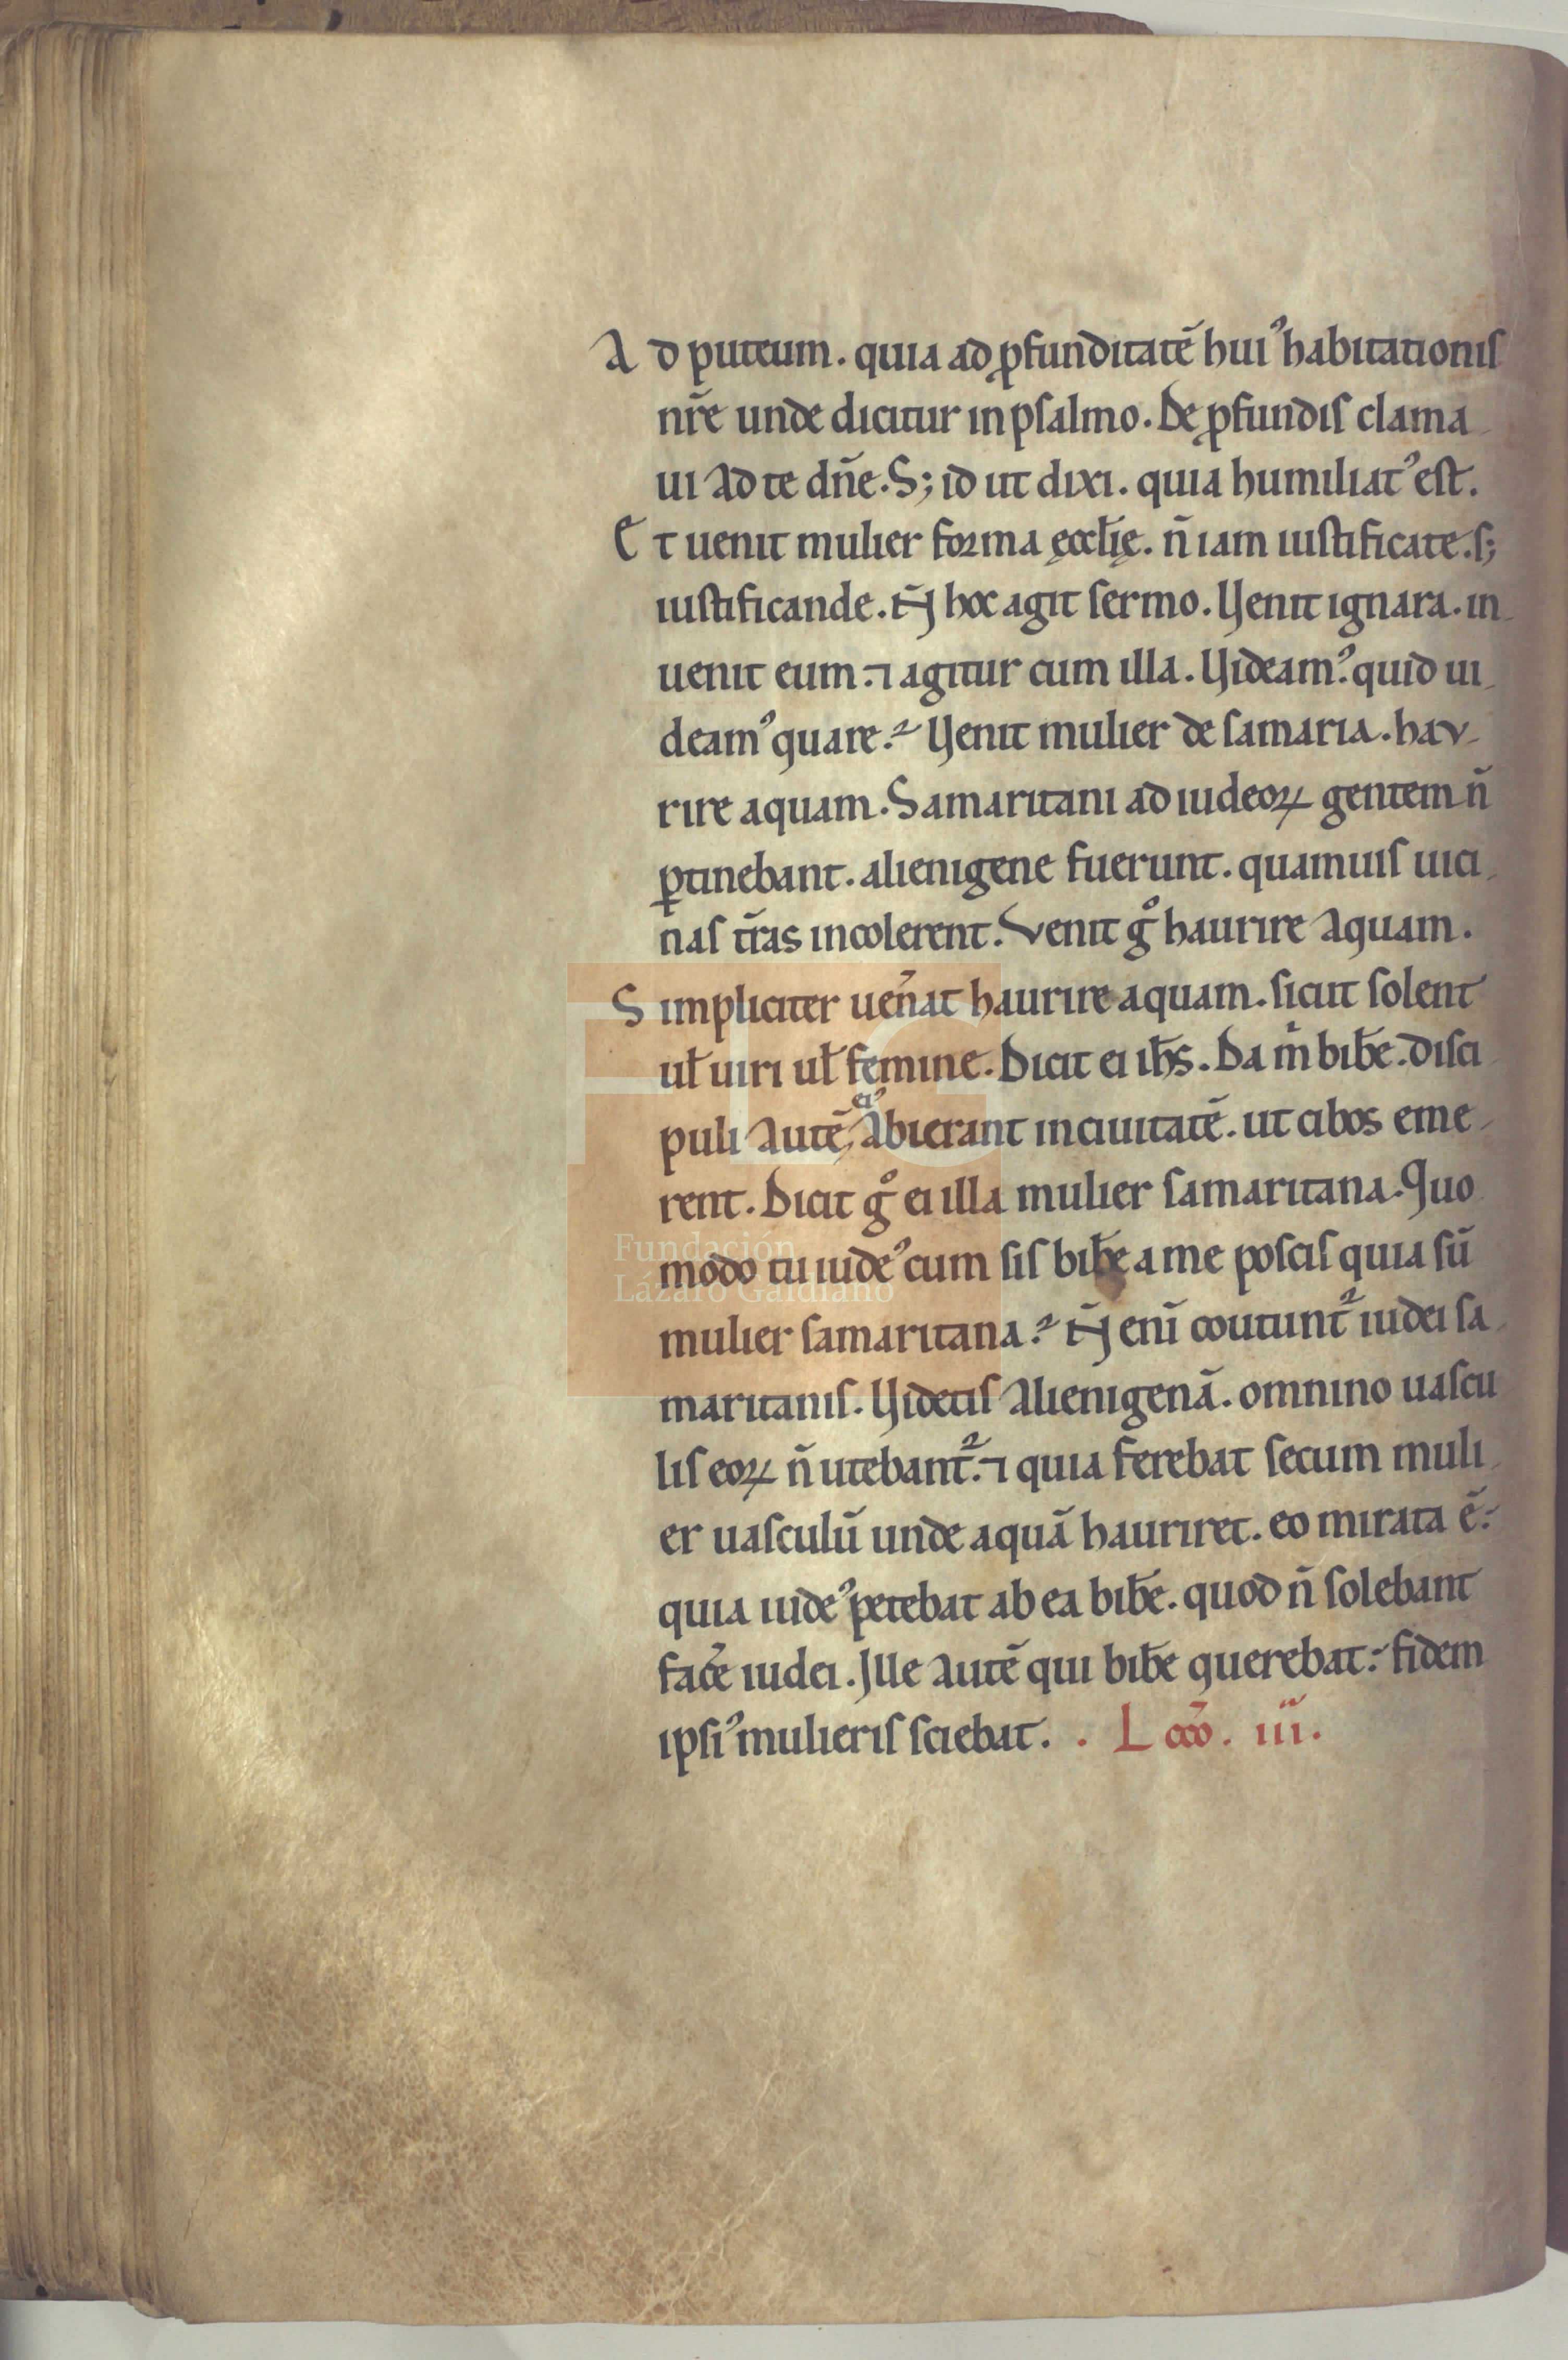 Ad puteum. quia ad ꝓfunditatē huiꝰ habitationis
nr̄e unde dicitur in psalmo. De ꝓfundis clama
ui ad te dn̄e. S; id ut dixi. quia humiliatꝰ est.
Et uenit mulier forma ęccl̄ię. n̄ iam iustificate. s;
iustificande. Ñ hoc agit sermo. Venit ignara. in
uenit eum. ⁊ agitur cum illa. Videamꝰ quid ui
deamꝰ quare? Venit mulier de samaria. hau
rire aquam. Samaritani ad iudeoꝝ gentem n̄
ꝑtinebant. alienigene fuerunt. quamuis uici
nas tr̄as incolerent. Venit gͦ haurire aquam.
Simpliciter uen̄at haurire aquam. sicut solent
ul̄ uiri ul̄ femine. Dicit ei ih̄s. Da m̍ bib̄e. Disci
puli autē eiꝰ abierant in ciuitatē. ut cibos eme
rent. Dicit gͦ ei illa mulier samaritana. Quo
modo tu iudeꝰ cum sis bib̄e a me poscis quia sū
mulier samaritana? Ñ enī coutunt᷑ iudei sa
maritanis. Videtis alienigenā. omnino uascu
lis eoꝝ n̄ utebant᷑. ⁊ quia ferebat secum muli
er uasculū unde aquā hauriret. eo mirata ē.
quia iudeꝰ petebat ab ea bib̄e. quod n̄ solebant
fac̄e iudei. Ille autē qui bib̄e querebat. fidem
ipsiꝰ mulieris sciebat. . L cc̄o. iii.
Fundación
Lázaro Galdiano
FLG